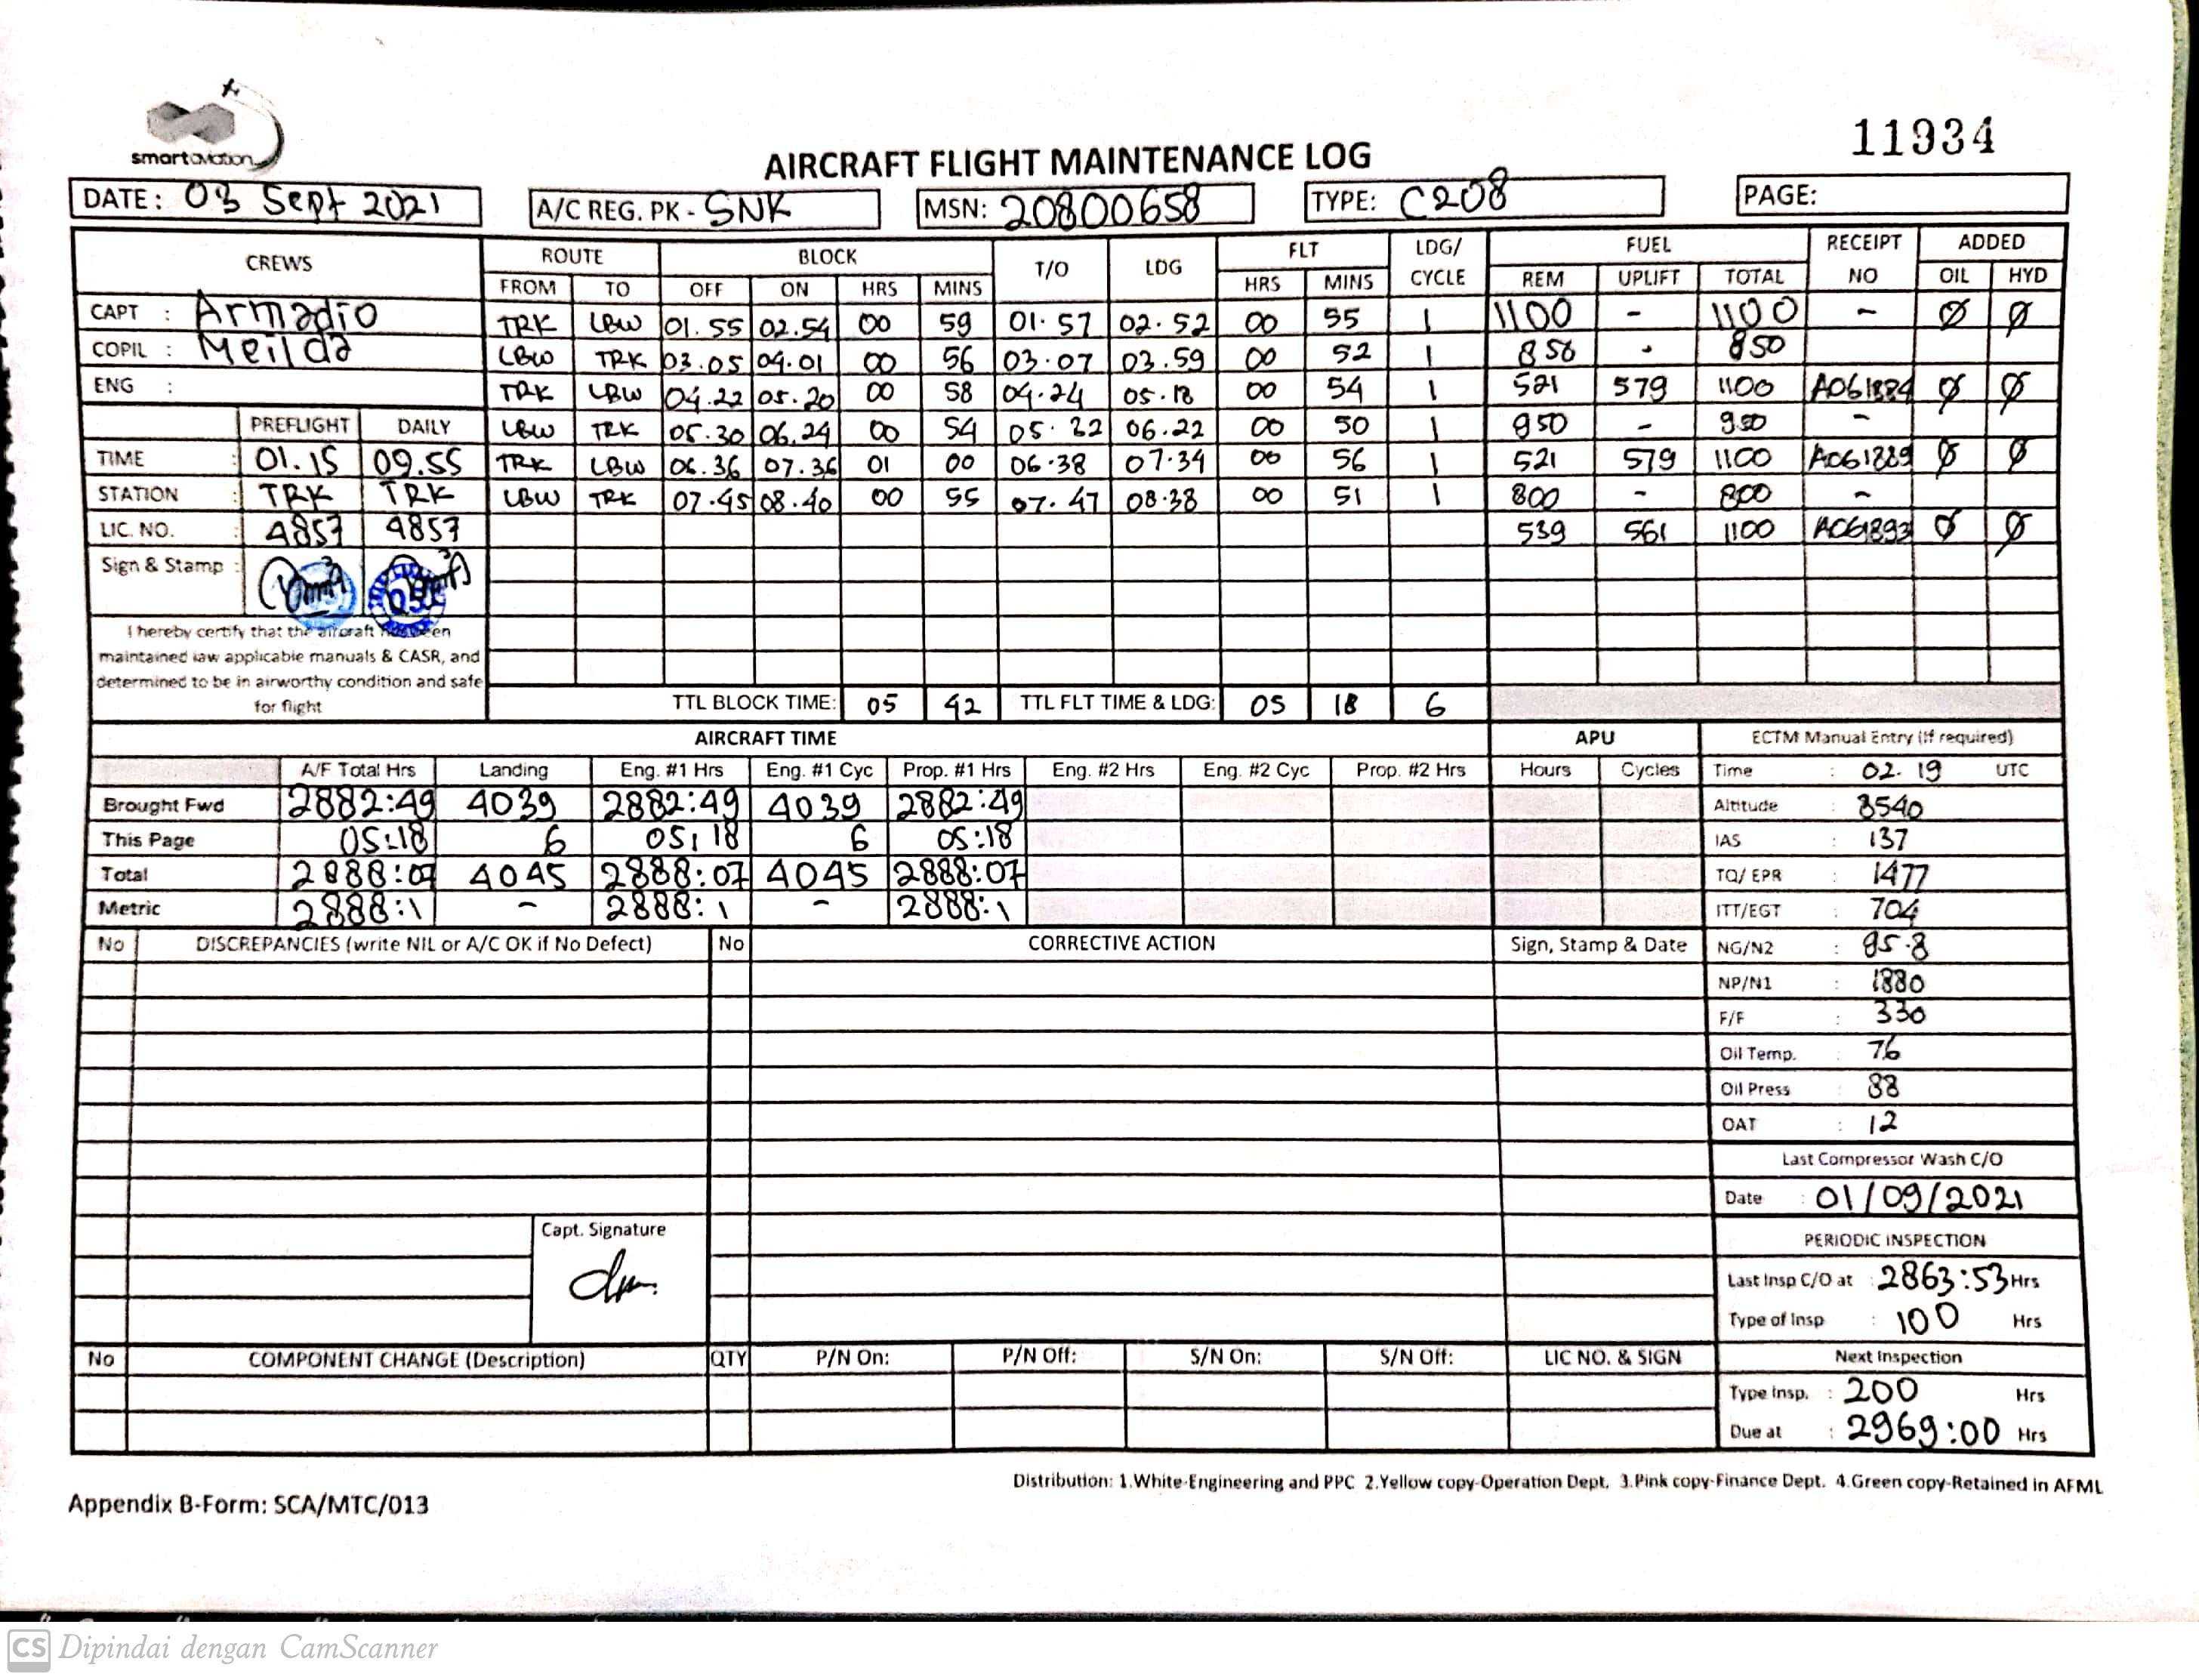 smartaviation
11934
AIRCRAFT FLIGHT MAINTENANCE LOG
DATE: 03 Sept 2021 A/C REG. PK - SNK MSN: 20800658 TYPE: C208 PAGE:
CREWS ROUTE BLOCK T/O LDG FLT LDG/ CYCLE FUEL RECEIPT NO ADDED
FROM TO OFF ON HRS MINS HRS MINS REM UPLIFT TOTAL OIL HYD
CAPT : Armadio TRK LBW 01.55 02.54 00 59 01.57 02.52 00 55 1 1100 - 1100 - Ø Ø
COPIL : Meilda LBW TRK 03.05 04.01 00 56 03.07 03.59 00 52 1 850 - 850
ENG : TRK LBW 04.22 05.20 00 58 04.24 05.18 00 54 1 521 579 1100 Ø Ø
PREFLIGHT DAILY LBW TRK 05.30 06.24 00 54 05.32 06.22 00 50 1 -
TIME : 01.15 09.55 TRK LBW 06.36 07.36 01 00 06.38 07.34 00 56 1 521 579 1100 A061889 Ø Ø
STATION : TRK TRK LBW TRK 07.45 08.40 00 55 07.47 08.38 00 51 1 800 - 800 -
LIC. NO. : 4857 4857 539 561 1100 A061893 Ø Ø
Sign & Stamp :
I hereby certify that the aircraft has been
maintained iaw applicable manuals & CASR, and
determined to be in airworthy condition and safe
for flight
TTL BLOCK TIME: 05 42 TTL FLT TIME & LDG: 05 18 6
AIRCRAFT TIME APU ECTM Manual Entry (if required)
A/F Total Hrs Landing Eng. #1 Hrs Eng. #1 Cyc Prop. #1 Hrs Eng. #2 Hrs Eng. #2 Cyc Prop. #2 Hrs Hours Cycles Time : 02.19 UTC
Brought Fwd 2882:49 4039 2882:49 4039 2882:49 Altitude : 8540
This Page 05:18 6 05:18 6 05:18 IAS : 137
Total 2888:07 4045 2888:07 4045 2888:07 TQ/ EPR : 1477
Metric 2888:1 - 2888:1 - 2888:1 ITT/EGT : 704
No DISCREPANCIES (write NIL or A/C OK if No Defect) No CORRECTIVE ACTION Sign, Stamp & Date NG/N2 : 95.8
NP/N1 : 1880
F/F : 330
Oil Temp. : 76
Oil Press : 88
OAT : 12
Last Compressor Wash C/O
Date : 01/09/2021
Capt. Signature
PERIODIC INSPECTION
Last Insp C/O at : 2863:53 Hrs
Type of Insp : 100 Hrs
No COMPONENT CHANGE (Description) QTY P/N On: P/N Off: S/N On: S/N Off: LIC NO. & SIGN Next Inspection
Type Insp. : 200 Hrs
Due at : 2969:00 Hrs
Distribution: 1.White-Engineering and PPC 2.Yellow copy-Operation Dept. 3.Pink copy-Finance Dept. 4.Green copy-Retained in AFML
Appendix B-Form: SCA/MTC/013
CS Dipindai dengan CamScanner